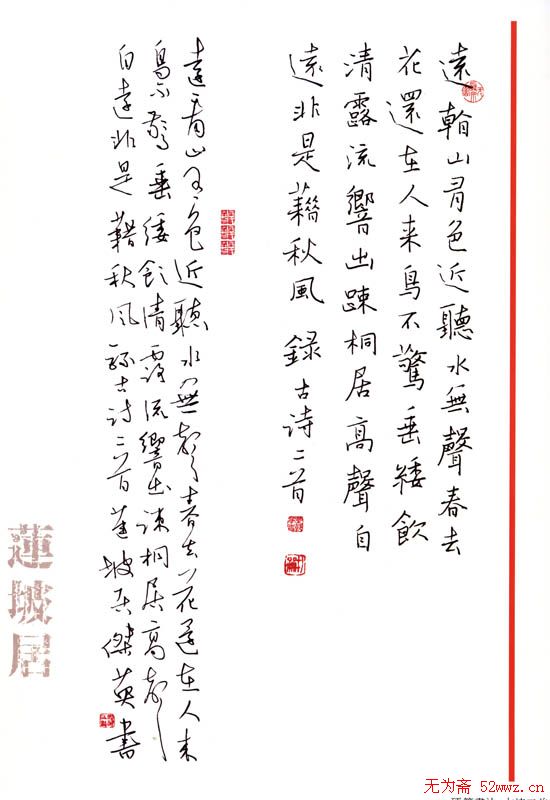 遠翰山有色近聽水無聲春去
花還在人来鳥不驚垂緌飲
清露流響出疎桐居高聲自
遠非是藉秋風 錄古诗二首
遠看山有色近聽水無聲春去花還在人来
鳥不驚垂緌飲清露流響出疎桐居高聲
自遠非是藉秋风錄古诗二首蓮坡居傑英書
蓮坡居
无为斋 52wwz.cn